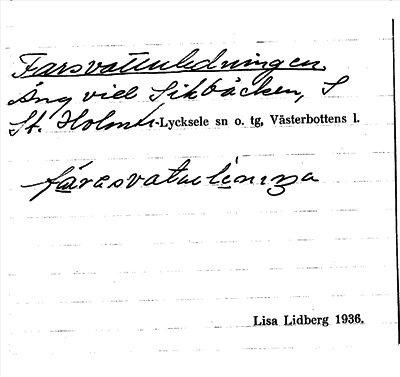 Farsvattuledningen
äng vid Sikbäcken, S
St. Holmtr-Lycksele sn o. tg, Västerbottens l.
Lisa Lidberg 1936.